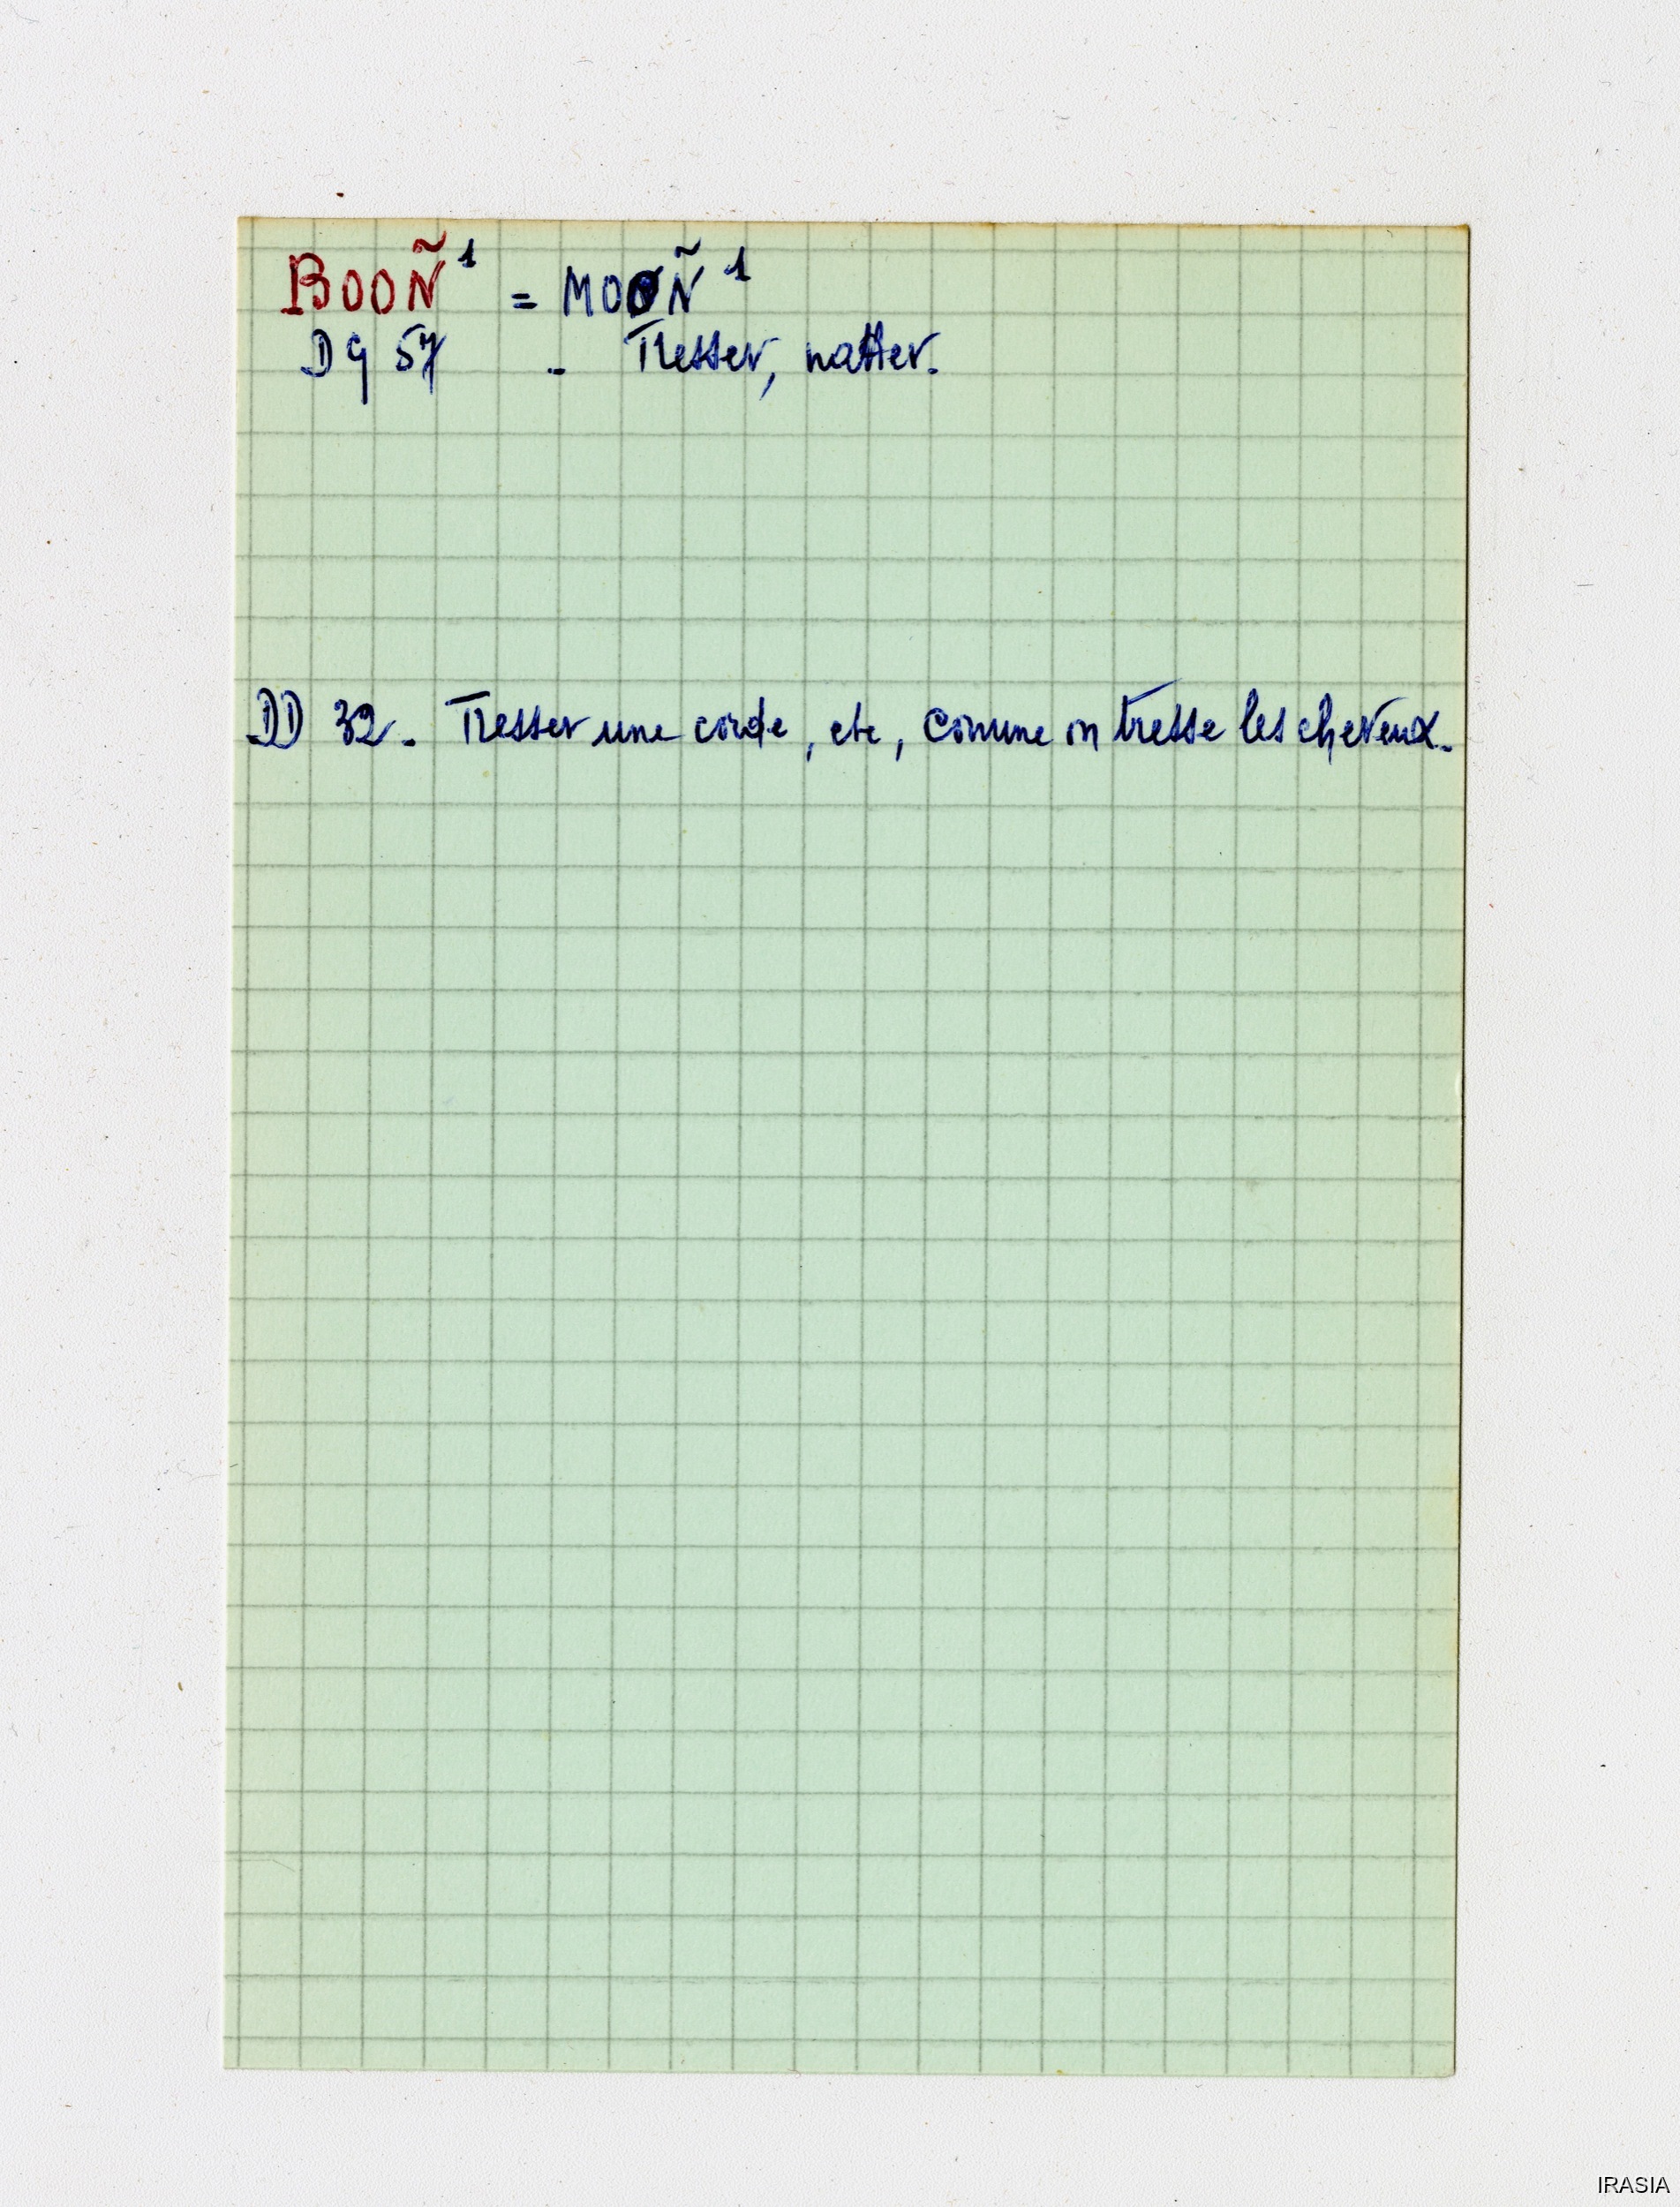 BOOÑ¹ = MOOÑ¹
Dg 57 - Tresser, natter.
DD 32 - Tresser une corde, etc, comme on tresse les cheveux.
IRASIA